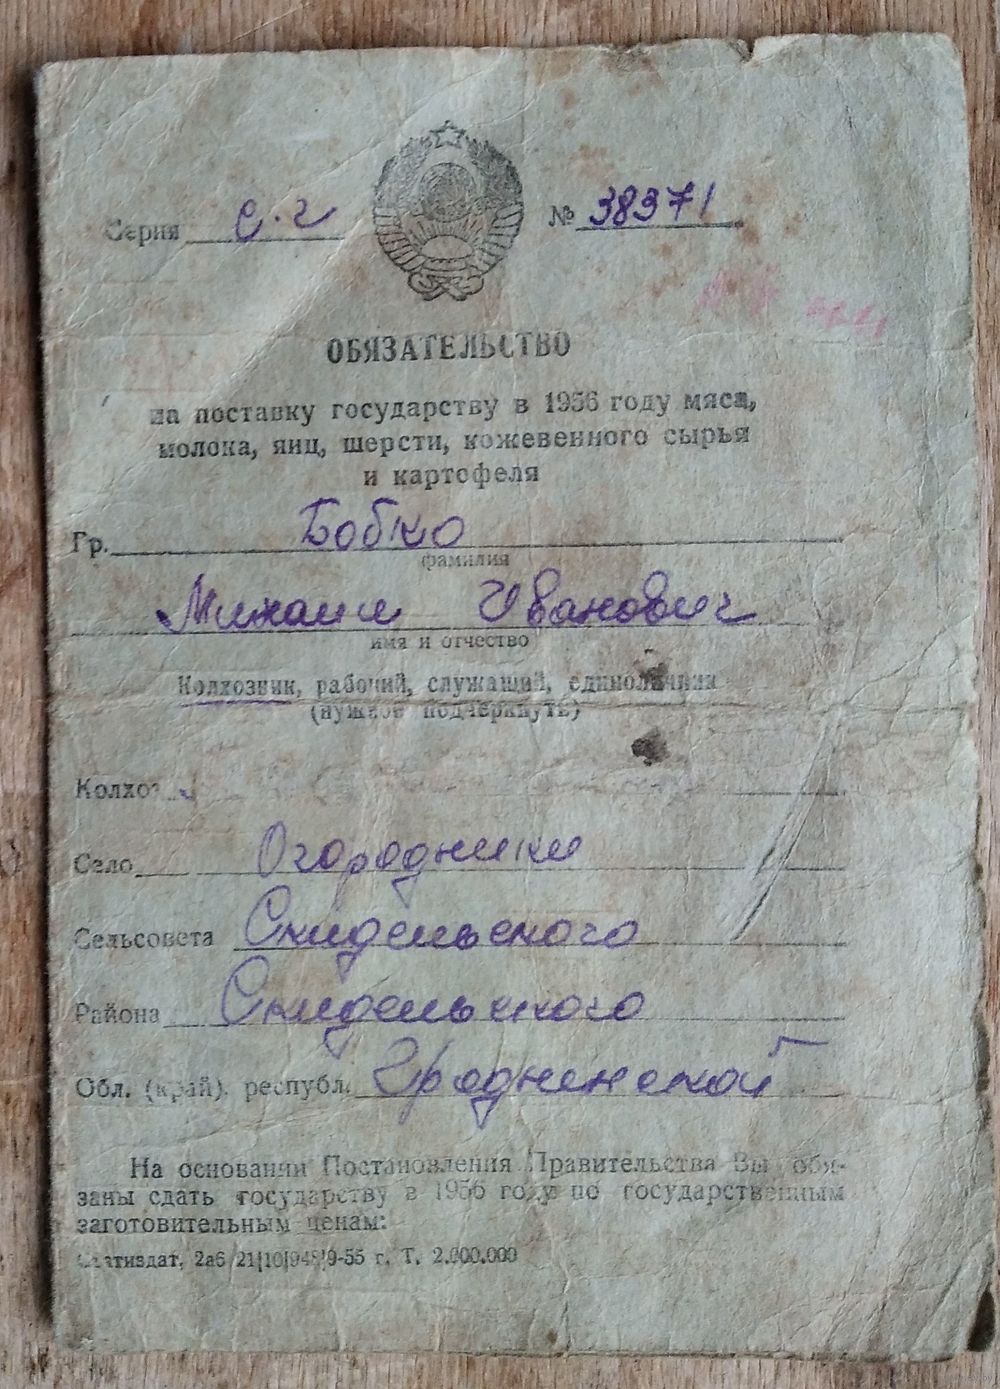 Серия С.г № 38371
ОБЯЗАТЕЛЬСТВО
на поставку государству в 1956 году мяса,
молока, яиц, шерсти, кожевенного сырья
и картофеля
Гр. Бобко
фамилия
Михаил Иванович
имя и отчество
Колхозник, рабочий, служащий, единоличник
(нужное подчеркнуть)
Колхоз
Село Огородники
Сельсовета Скидельского
Района Скидельского
Обл. (край), республ. Гродненской
На основании Постановления Правительства Вы обя-
заны сдать государству в 1956 году по государственным
заготовительным ценам:
2аб 21|10|948|9-55 г. Т. 2.000.000